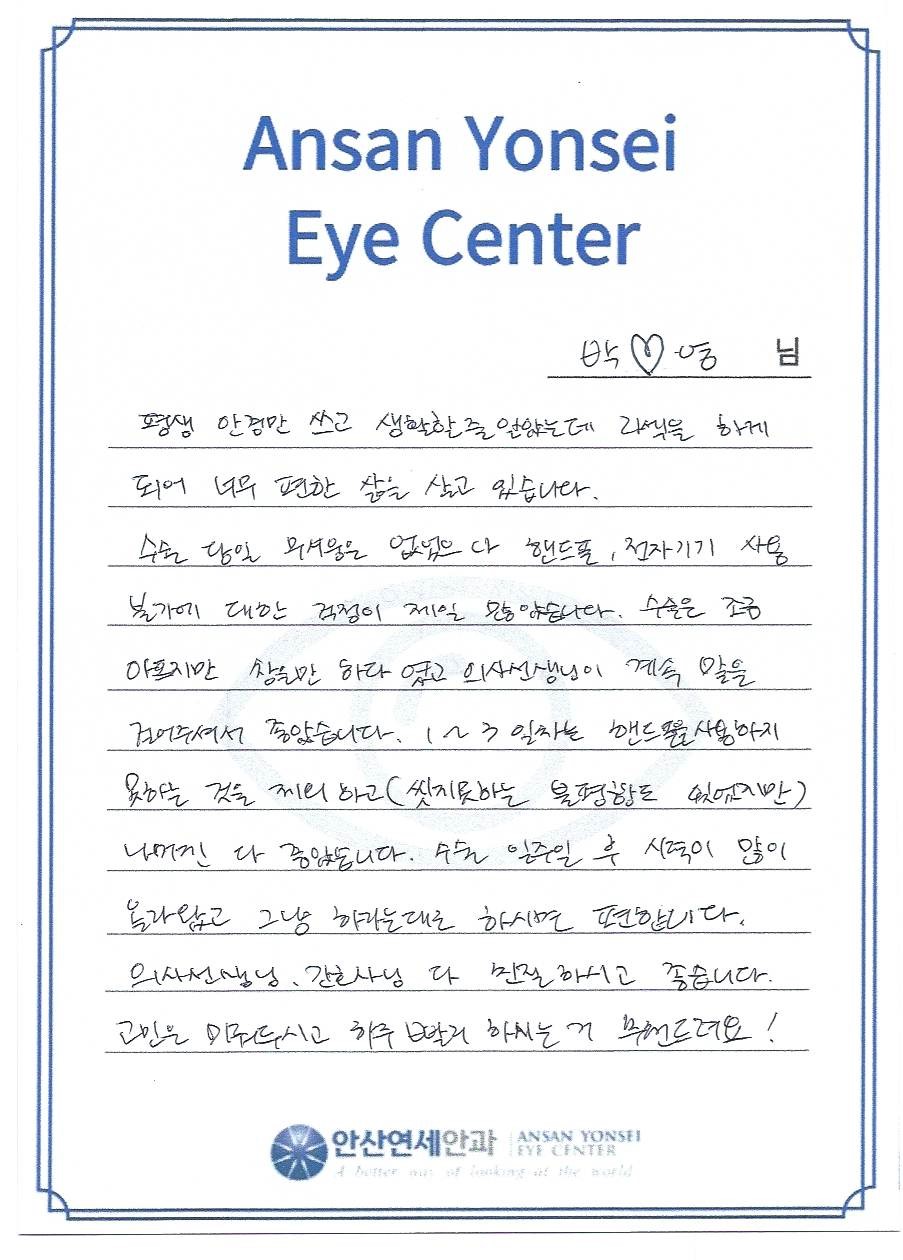 Ansan Yonsei
Eye Center
박♡영 님
평생 안경만 쓰고 생활할줄 알았는데 라섹을 하게
되어 너무 편한 삶을 살고 있습니다.
수술 당일 무서움은 없었으나 핸드폰, 전자기기 사용
불가에 대한 걱정이 제일 많았습니다. 수술은 조금
아프지만 참을만 하다 였고 의사선생님이 계속 말을
걸어주셔서 좋았습니다. 1~3일차는 핸드폰을 사용하지
못하는 것을 제외하고(씻지못하는 불편함도 있었지만)
나머진 다 좋았습니다. 수술 일주일 후 시력이 많이
올라왔고 그냥 하라는대로 하시면 편합니다.
의사선생님, 간호사님 다 친절하시고 좋습니다.
고민은 미뤄두시고 하루 빨리 하시는 거 추천드려요!
안산연세안과 ANSAN YONSEI
EYE CENTER
A better way of looking at the world